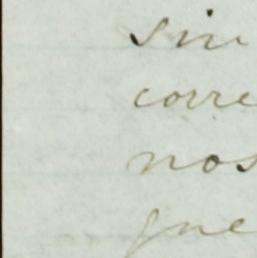 sin
corre
nos
que